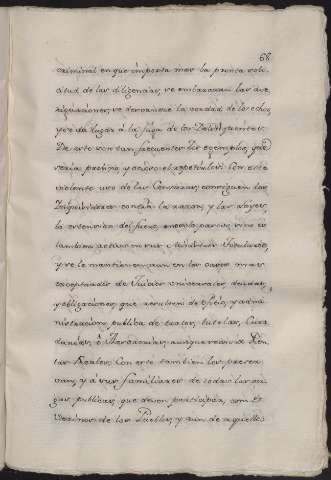 68
criminal en que importa mas la pronta soli-
citud de las diligencias, se embarazan las ave-
riguaciones, se desvanece la verdad de los echos,
y se da lugar á la fuga de los Delinquentes.
De esto son tan frecuentes los exemplos, que
seria prolixo y el repetirlos. Con este
violento uso de las Censuras, consiguen los
Inquisidores contra la razon, y las Leyes,
la extension del fuero, en no solo
tambien activa en sus Titulados,
y se le mantienen aun en los casos mas
exceptuados de Juicios universales, deudas,
y obligaciones, que resulten de oficio, y admi-
nistracion publica de tutelas, Cura-
durias, ó Thesorerias, aunque sean de Ren-
tas Reales. Con esto tambien los preser-
van, y á sus familiares de todas las car-
gas publicas, que deven participar, como Ve-
cinos de los Pueblos, y aun de aquellas